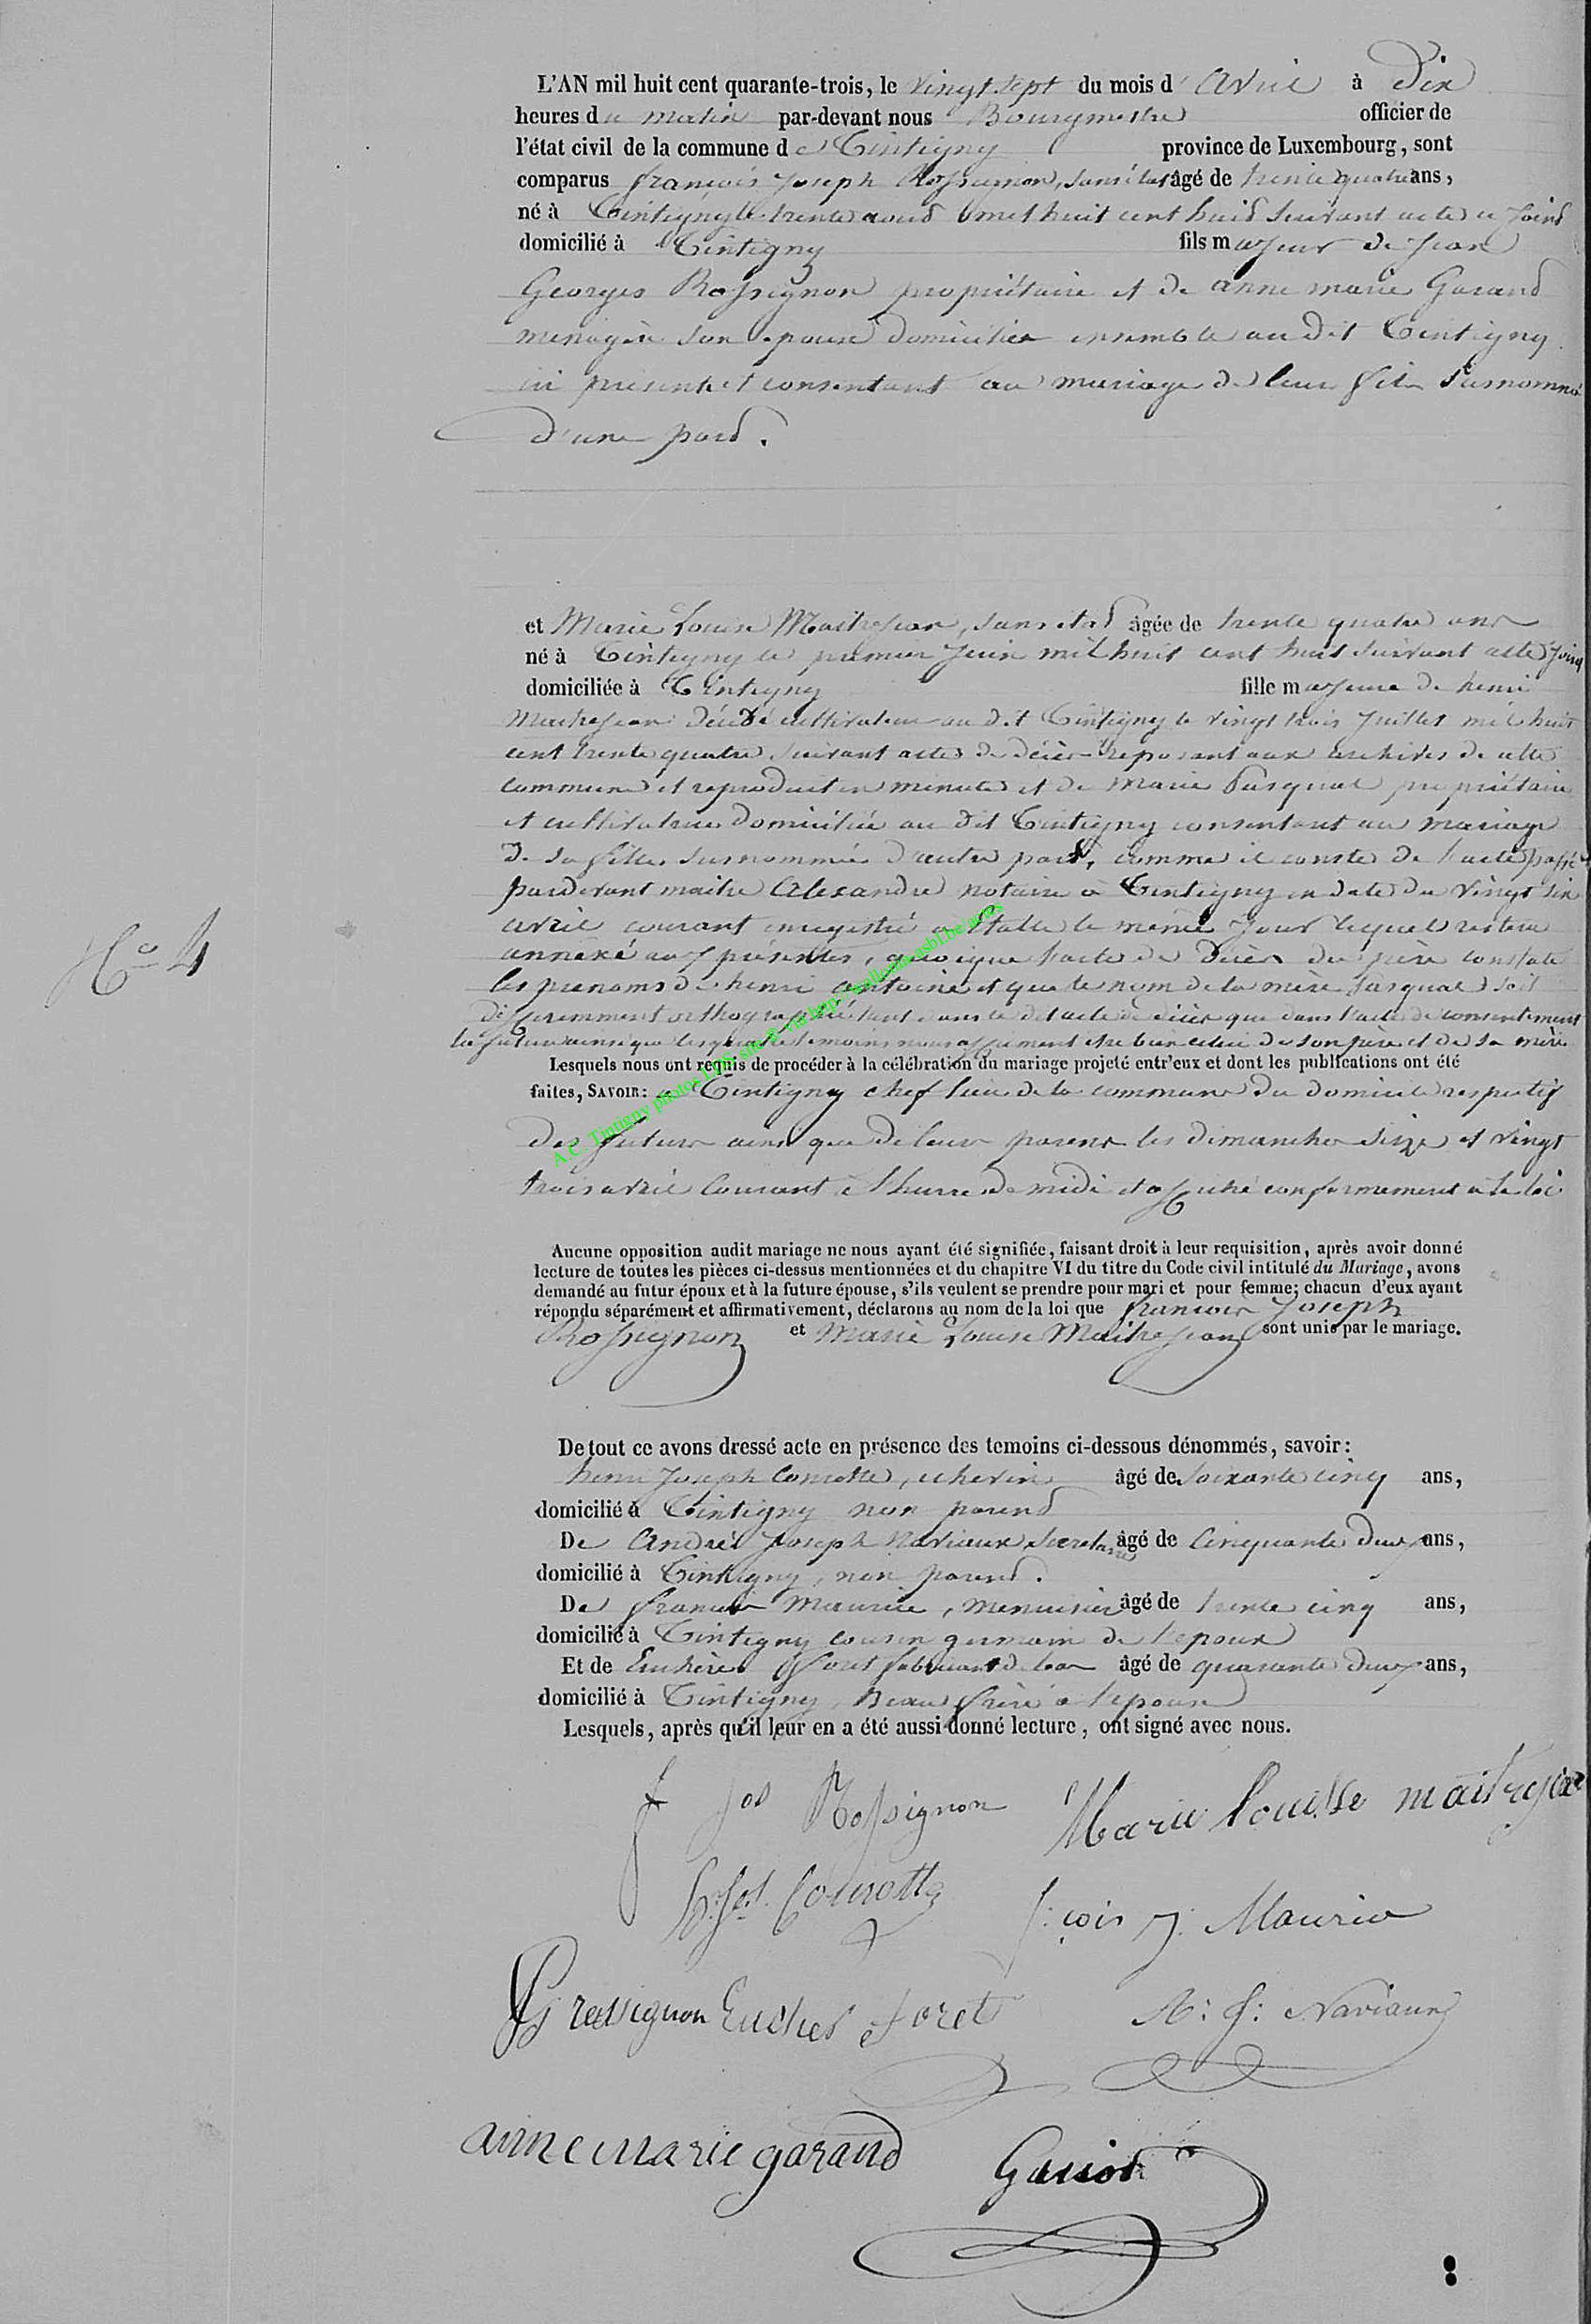 L'AN mil huit cent quarante-trois, le vingt sept du mois d'avril à Dix
heures du matin par-devant nous Bourgmestre officier de
l'état civil de la commune de Tintigny province de Luxembourg, sont
comparus françois Joseph Rossignon, sans état âgé de trente quatre ans,
né à Tintigny le trente aoud mil huit cent huid suivant acte ci joind
domicilié à Tintigny fils majeur de Jean
Georges Rossignon propriétaire et de anne marie Garand
menagère son epouse domiciliés ensemble au dit Tintigny
ici present et consentant au mariage de leur fils susnommé
d'une pard.
et Marie Louise Maitrejean, sans etat âgée de trente quatre ans
né à Tintigny le premier Juin mil huit cent huit suivant acte joint
domiciliée à Tintigny fille majeure de henri
Maitrejean décédé cultivateur au dit Tintigny le vingt trois Juillet mil huit
cent trente quatre suivant acte de décès reposant aux archives de cette
commune et reproduit en minute et de Marie Pasqual propriétaire
et cultivatrice domiciliée au dit Tintigny consentant au mariage
de sa fille susnommée d'autre part, comme il conste de l'acte passé
pardevant maitre Alexandre notaire à Tintigny en date du vingt six
avril courant enregistré à Etalle le même jour lequel restera
annexé aux présentes, quoique l'acte de décès du père constate
les prenoms de henri antoine et que le nom de la mère Pasqual soit
differemment orthographié tant dans le dit acte de décès que dans l'acte de consentement
la future ainsi que les quatre temoins nous affirment etre bien celui de son père et de sa mère
Lesquels nous ont requis de procéder à la célébration du mariage projeté entr'eux et dont les publications ont été
faites, SAVOIR: à Tintigny chef lieu de la commune du domicile respectif
des futurs ainsi que de leurs parens les dimanches seize et vingt
trois avril courant à l'heure de midi et affiché conformement à la loi
Aucune opposition audit mariage ne nous ayant été signifiée, faisant droit à leur requisition, après avoir donné
lecture de toutes les pièces ci-dessus mentionnées et du chapitre VI du titre du Code civil intitulé du Mariage, avons
demandé au futur époux et à la future épouse, s'ils veulent se prendre pour mari et pour femme; chacun d'eux ayant
répondu séparément et affirmativement, déclarons au nom de la loi que francois Joseph
Rossignon et Marie Louise Maitrejean sont unis par le mariage.
De tout ce avons dressé acte en présence des temoins ci-dessous dénommés, savoir:
henri Joseph Cornotte, echevin âgé de soixante cinq ans,
domicilié à Tintigny non parend
De André Joseph Naviaux Secretaire âgé de Cinquante deux ans,
domicilié à Tintigny, non parend.
De francois Maurice, menuisier âgé de trente cinq ans,
domicilié à Tintigny cousin germain de l'epoux
Et de Euchère Foret fabricant de bas âgé de quarante deux ans,
domicilié à Tintigny Beau frère à l'epouse
Lesquels, après qu'il leur en a été aussi donné lecture, ont signé avec nous.
N° 4
f Jos Rossignon Marie Louisse maitrejean
h. Jos. Cornotte f: çois J. Maurice
JG rossignon Eucher foret A: J: Naviaux
anne marie garand